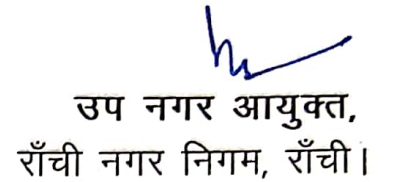 उप नगर आयुक्त,
राँची नगर निगम, राँची।